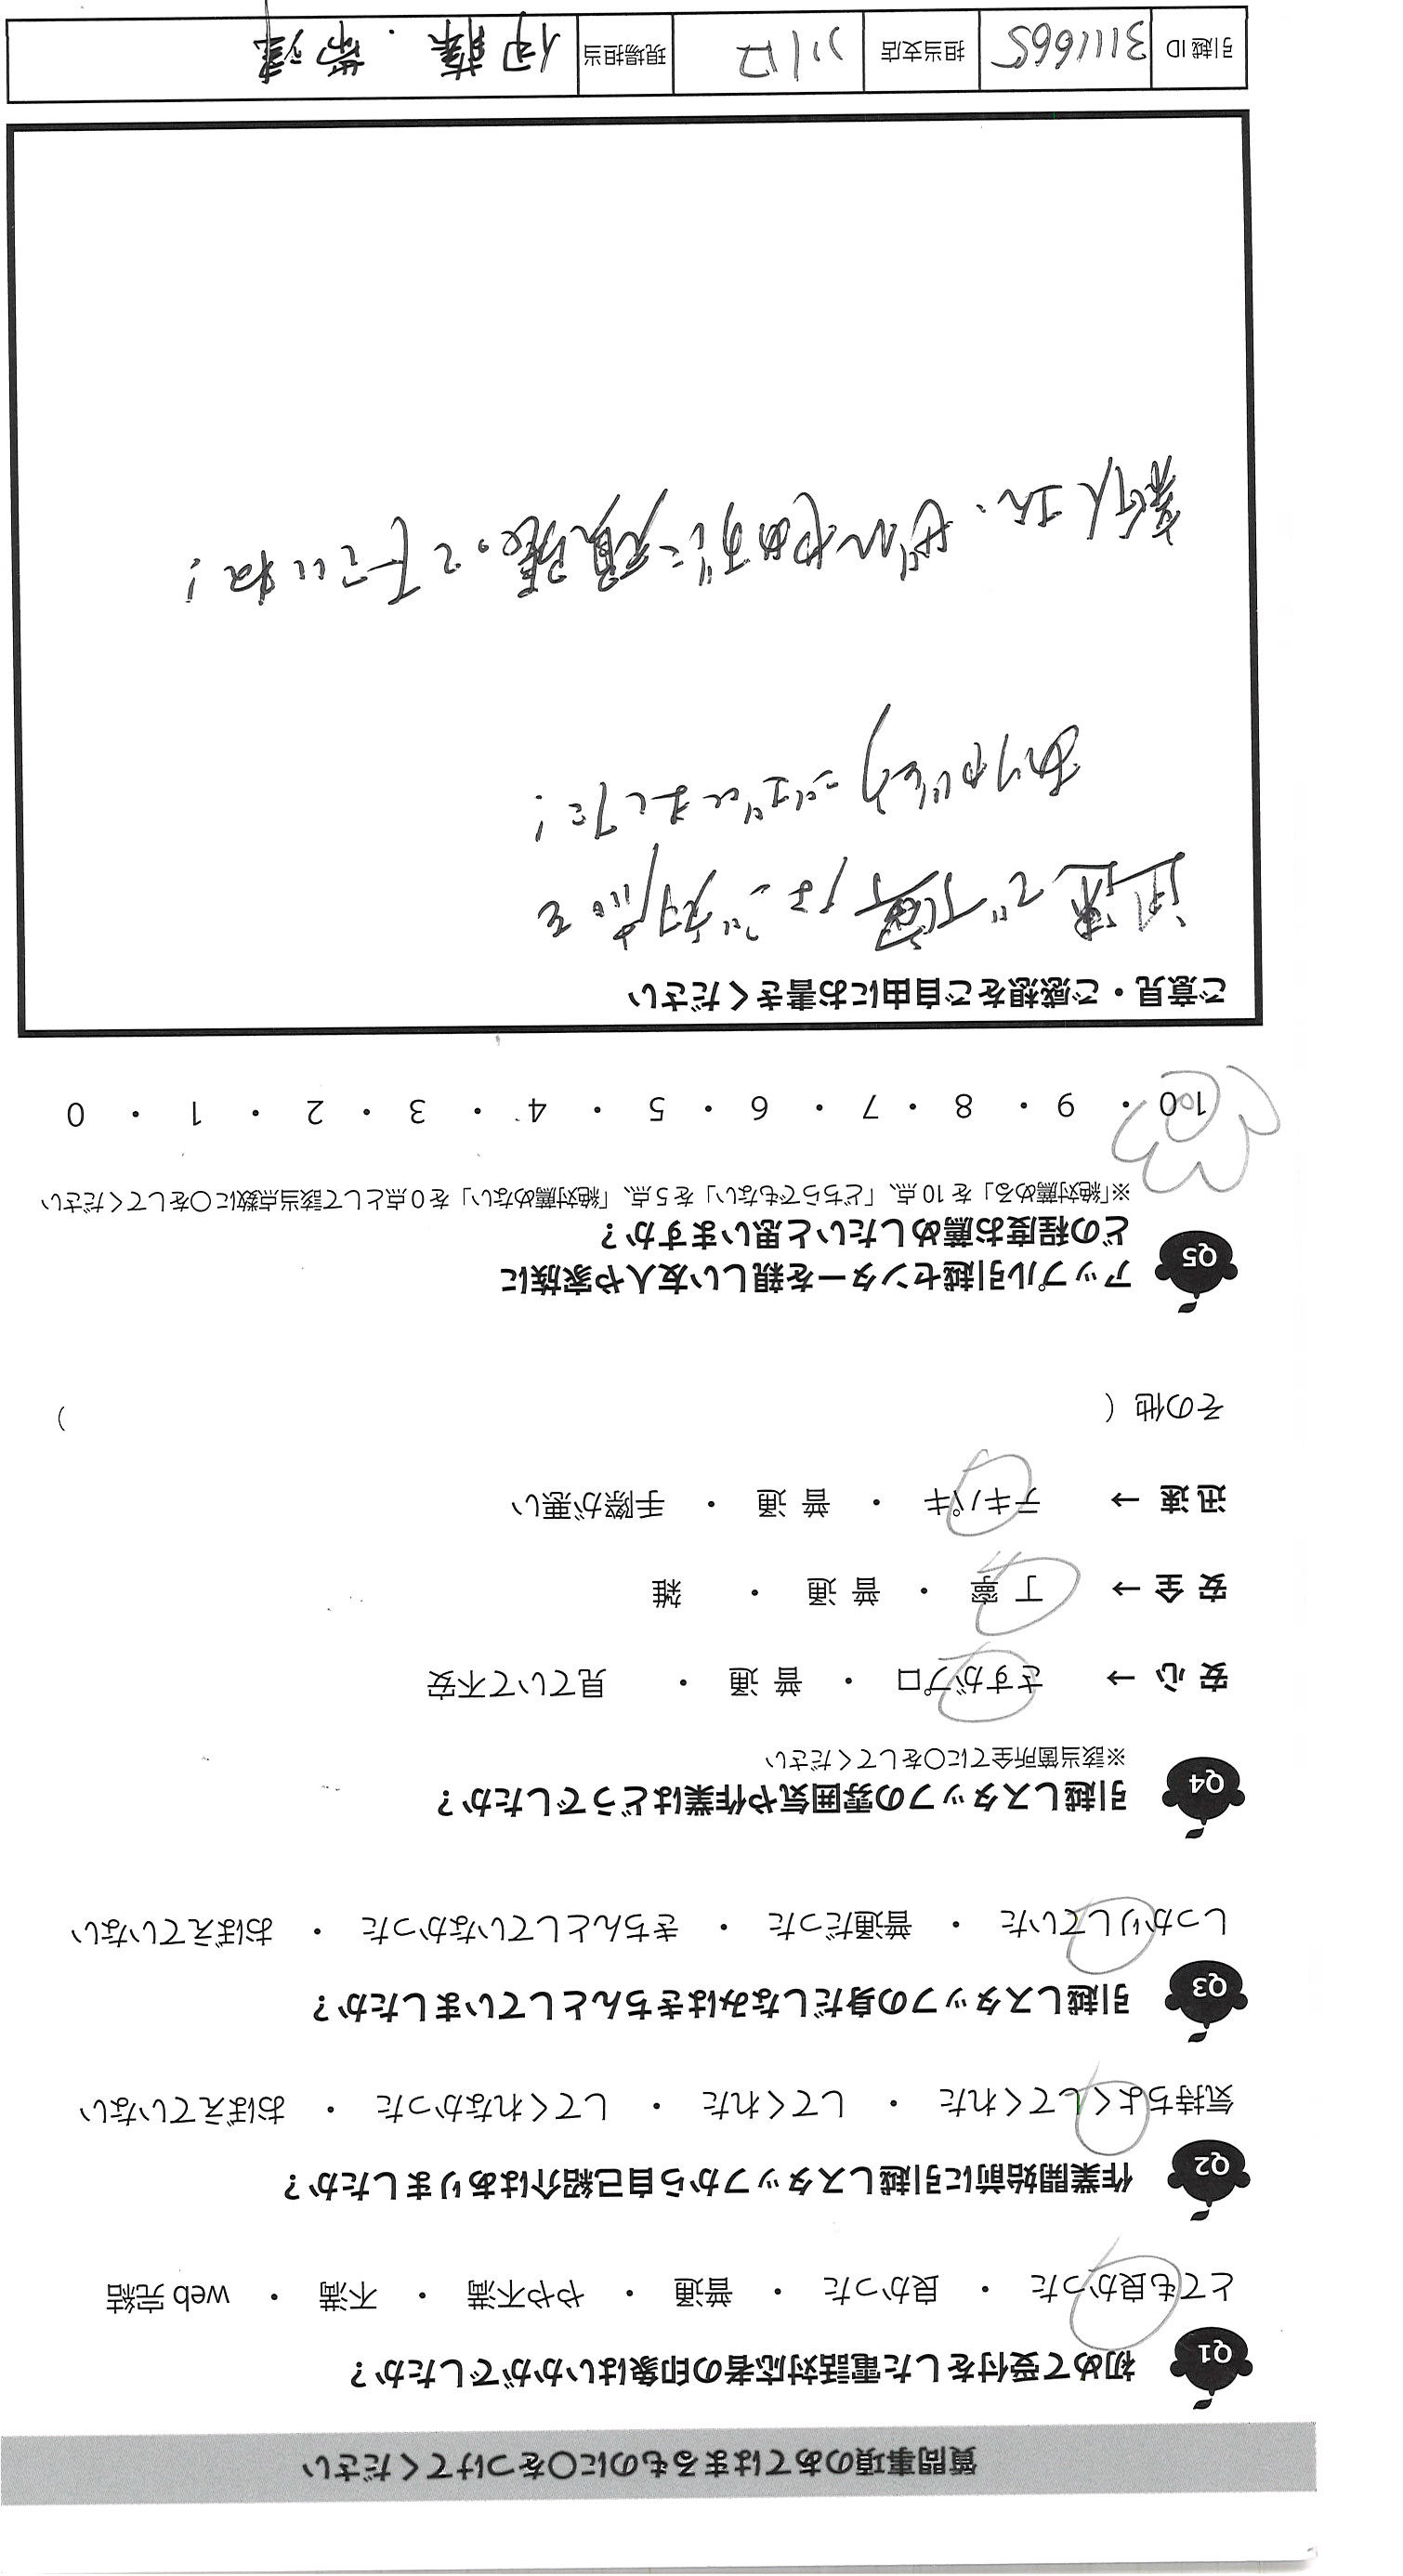 質問事項のあてはまるものに〇をつけてください
Q1 初めて受付をした電話対応者の印象はいかがでしたか？
とても良かった ・ 良かった ・ 普通 ・ やや不満 ・ 不満 ・ web 完結
Q2 作業開始前に引越しスタッフから自己紹介はありましたか？
気持ちよくしてくれた ・ してくれた ・ してくれなかった ・ おぼえていない
Q3 引越しスタッフの身だしなみはきちんとしていましたか？
しっかりしていた ・ 普通だった ・ きちんとしていなかった ・ おぼえていない
Q4 引越しスタッフの雰囲気や作業はどうでしたか？
※該当箇所全てに〇をしてください
安 心 → さすがプロ ・ 普 通 ・ 見ていて不安
安 全 → 丁 寧 ・ 普 通 ・ 雑
迅 速 → テキパキ ・ 普 通 ・ 手際が悪い
その他（ ）
Q5 アップル引越センターを親しい友人や家族に
どの程度お薦めしたいと思いますか？
※「絶対薦める」を 10 点、「どちらでもない」を 5 点、「絶対薦めない」を 0 点として該当点数に〇をしてください
10 ・ 9 ・ 8 ・ 7 ・ 6 ・ 5 ・ 4 ・ 3 ・ 2 ・ 1 ・ 0
ご意見・ご感想をご自由にお書きください
迅速で丁寧なご対応を
ありがとうございました！
新人さん、ぜひやめずに頑張って下さいね！
引越 ID 3111665 担当支店 川口 現場担当 伊藤・